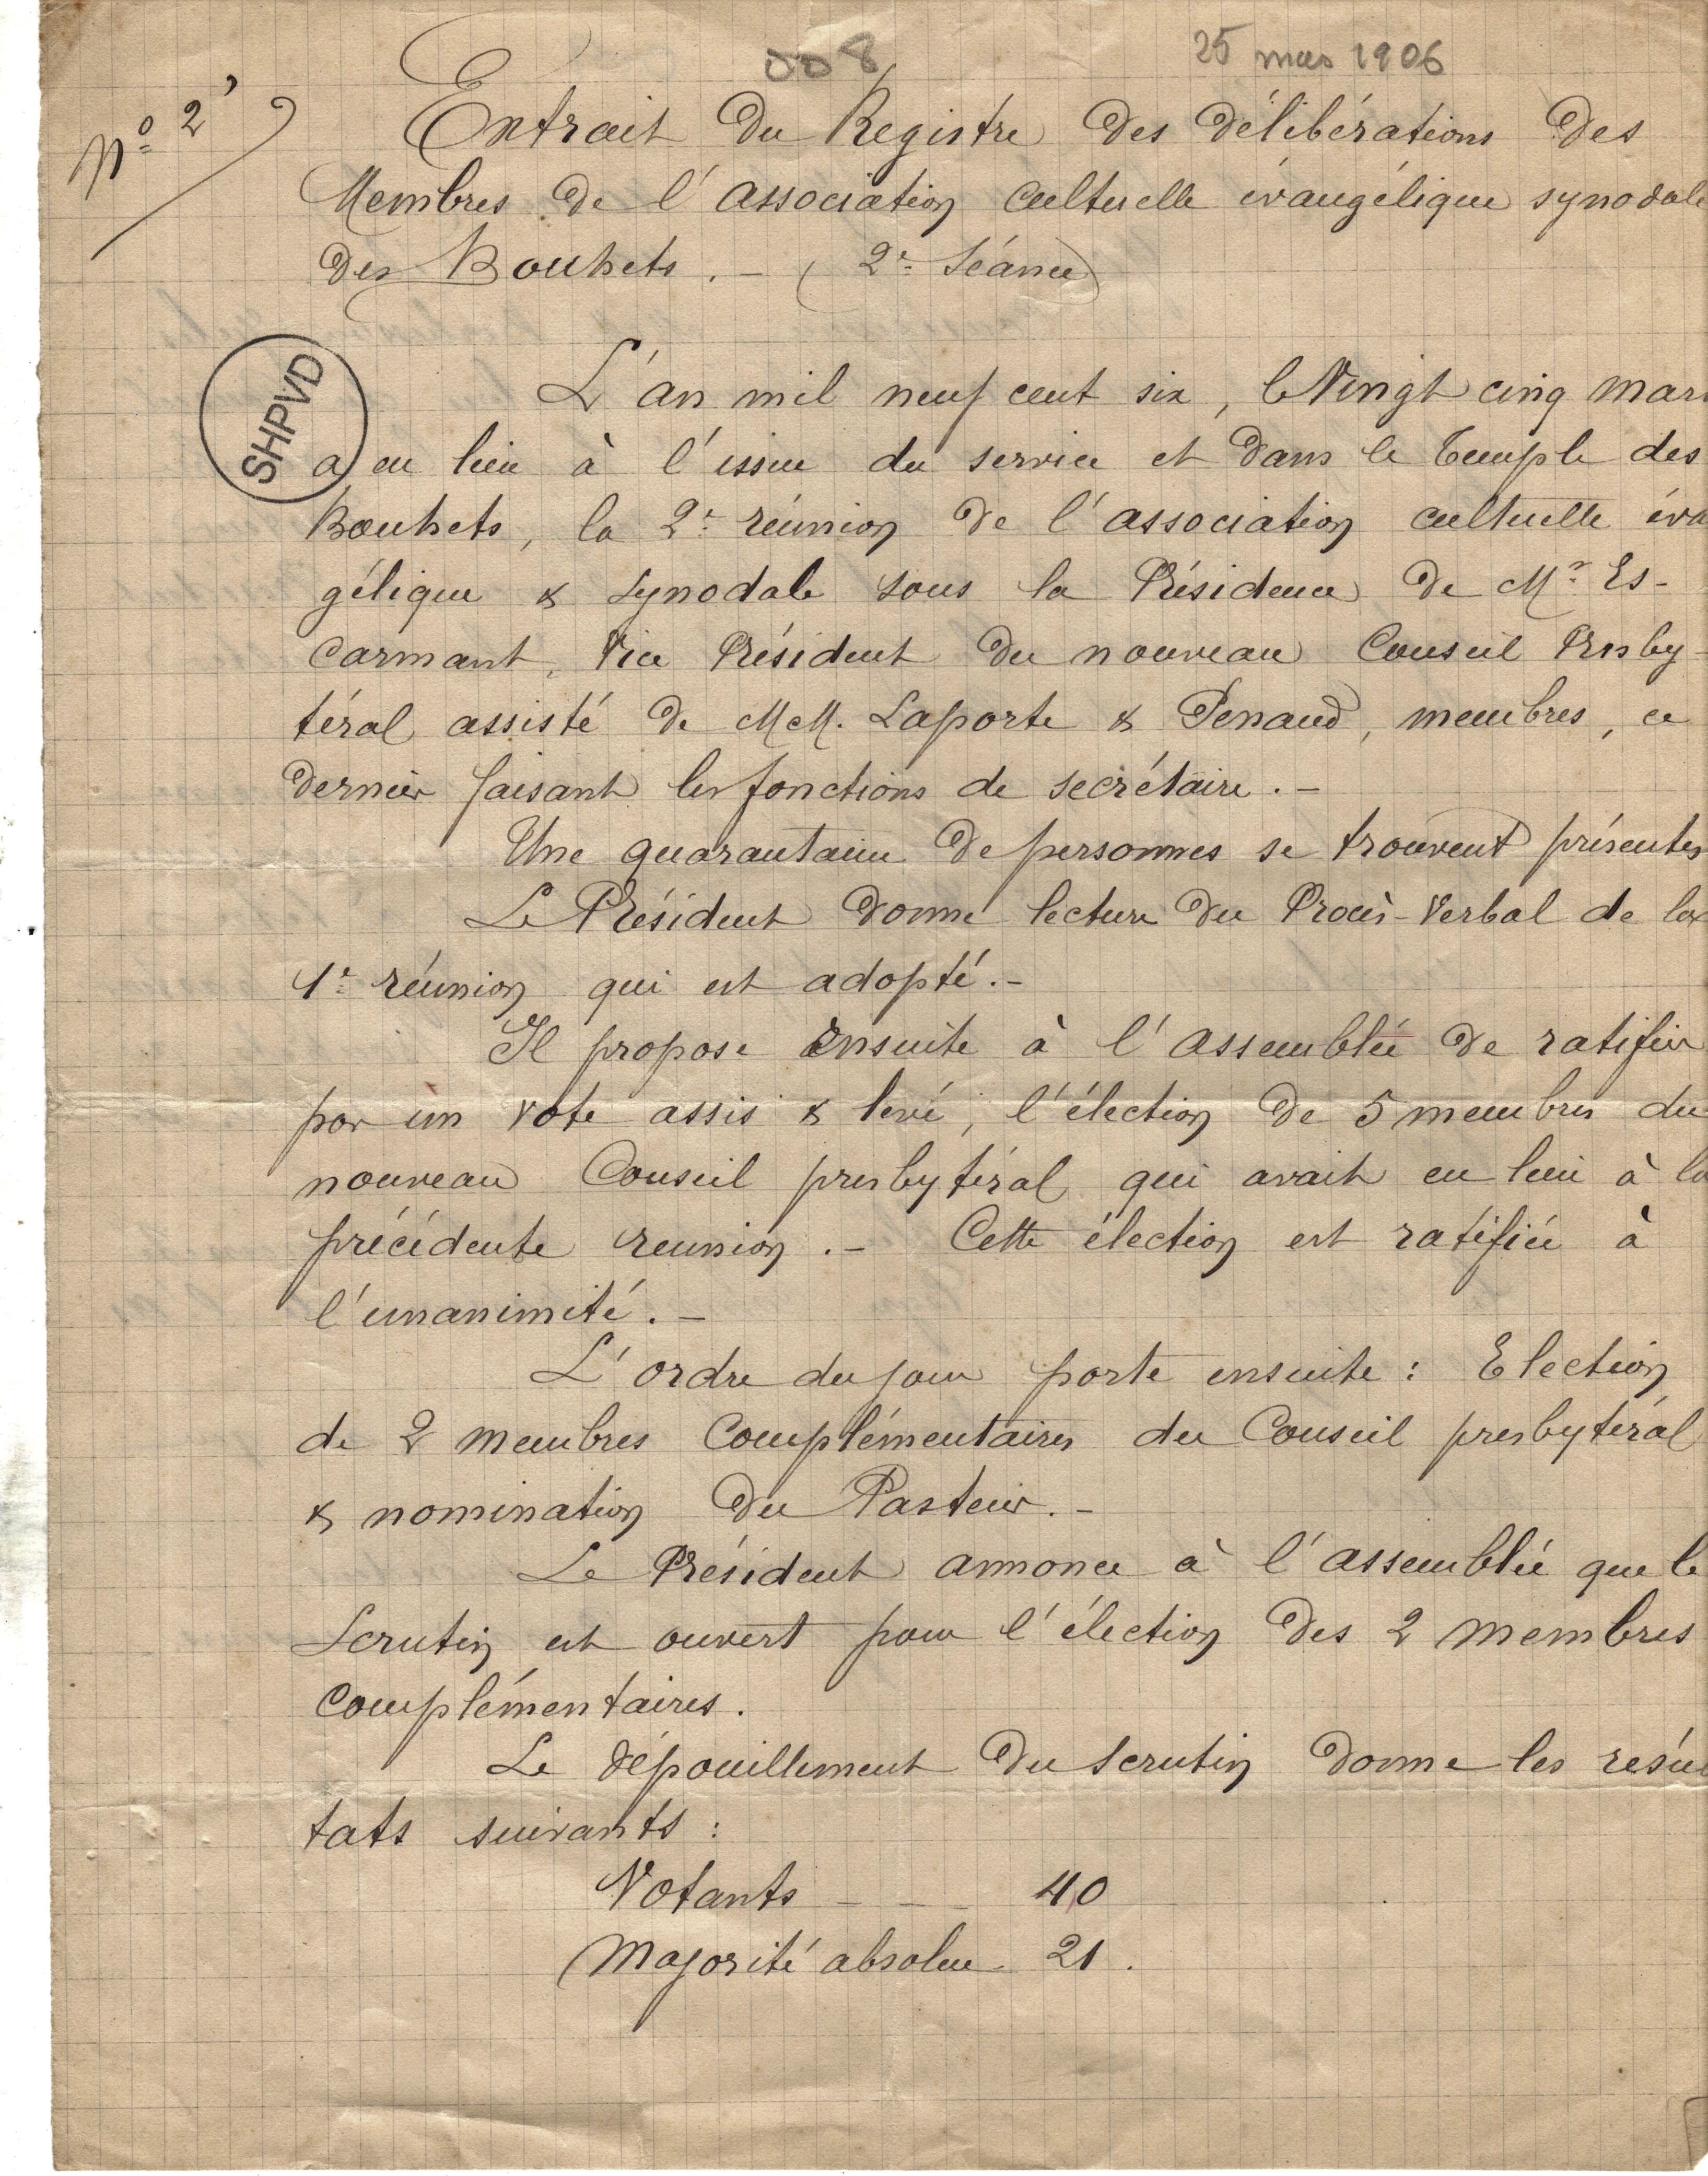 008
25 mars 1906
N° 2
Extrait du Registre des délibérations des
Membres de l'association cultuelle évangélique synodale
des Bouhets. - (2e Séance)
SHPVD
L'an mil neuf cent six, le Vingt cinq mars
a eu lieu à l'issue du service et dans le temple des
Bouhets, la 2e réunion de l'association cultuelle évan
gélique & synodale sous la Présidence de Mr Es-
carmant, Vice Président du nouveau Conseil Presby-
téral assisté de MM. Laporte & Penaud, membres, ce
dernier faisant les fonctions de secrétaire. -
Une quarantaine de personnes se trouvent présentes
Le Président donne lecture du Procès-Verbal de la
1e réunion qui est adopté. -
Il propose ensuite à l'assemblée de ratifier
par un vote assis & levé, l'élection de 5 membres du
nouveau Conseil presbytéral qui avait eu lieu à la
précédente reunion. - Cette élection est ratifiée à
l'unanimité. -
L'ordre du jour porte ensuite : Election
de 2 membres Complémentaires du Conseil presbytéral
& nomination du Pasteur. -
Le Président annonce à l'assemblée que le
Scrutin est ouvert pour l'élection des 2 membres
Complémentaires.
Le dépouillement du scrutin donne les résul
tats suivants :
Votants - - - 40
Majorité absolue 21.